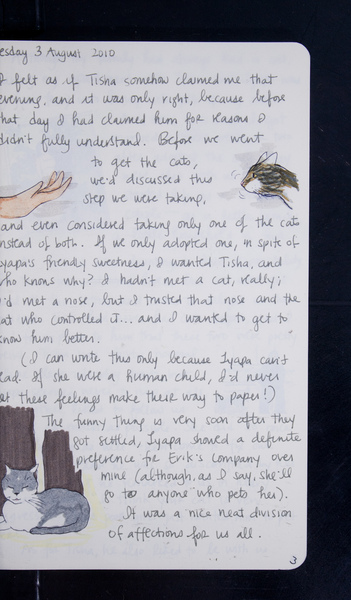 esday 3 August 2010
I felt as if Tisha somehow claimed me that
evening, and it was only right, because before
that day I had claimed him for reasons I
didn't fully understand. Before we went
to get the cats,
we'd discussed this
step we were taking,
and even considered taking only one of the cats
instead of both. If we only adopted one, in spite of
Iyapa's friendly sweetness, I wanted Tisha, and
who knows why? I hadn't met a cat, really;
I'd met a nose, but I trusted that nose and the
cat who controlled it... and I wanted to get to
know him better.
(I can write this only because Iyapa can't
read. If she were a human child, I'd never
let these feelings make their way to paper!)
The funny thing is very soon after they
got settled, Iyapa showed a definite
preference for Erik's company over
mine (although, as I say, she'll
go to anyone who pets her).
It was a nice neat division
of affections for us all.
3